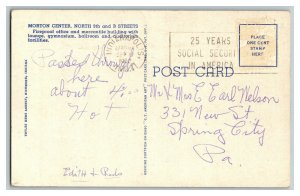 MORTON CENTER, NORTH 9th and B STREETS
Fireproof office and mercantile building with
lounge, gymnasium, ballroom and
facilities.
25 YEARS
SOCIAL SECURITY
IN AMERICA
PLACE
ONE CENT
STAMP
HERE
POST CARD
Passed through
here
about 4:00
Hot
Edith &
Mr & Mrs E. Earl Nelson
331 New St.
Spring City
Pa.